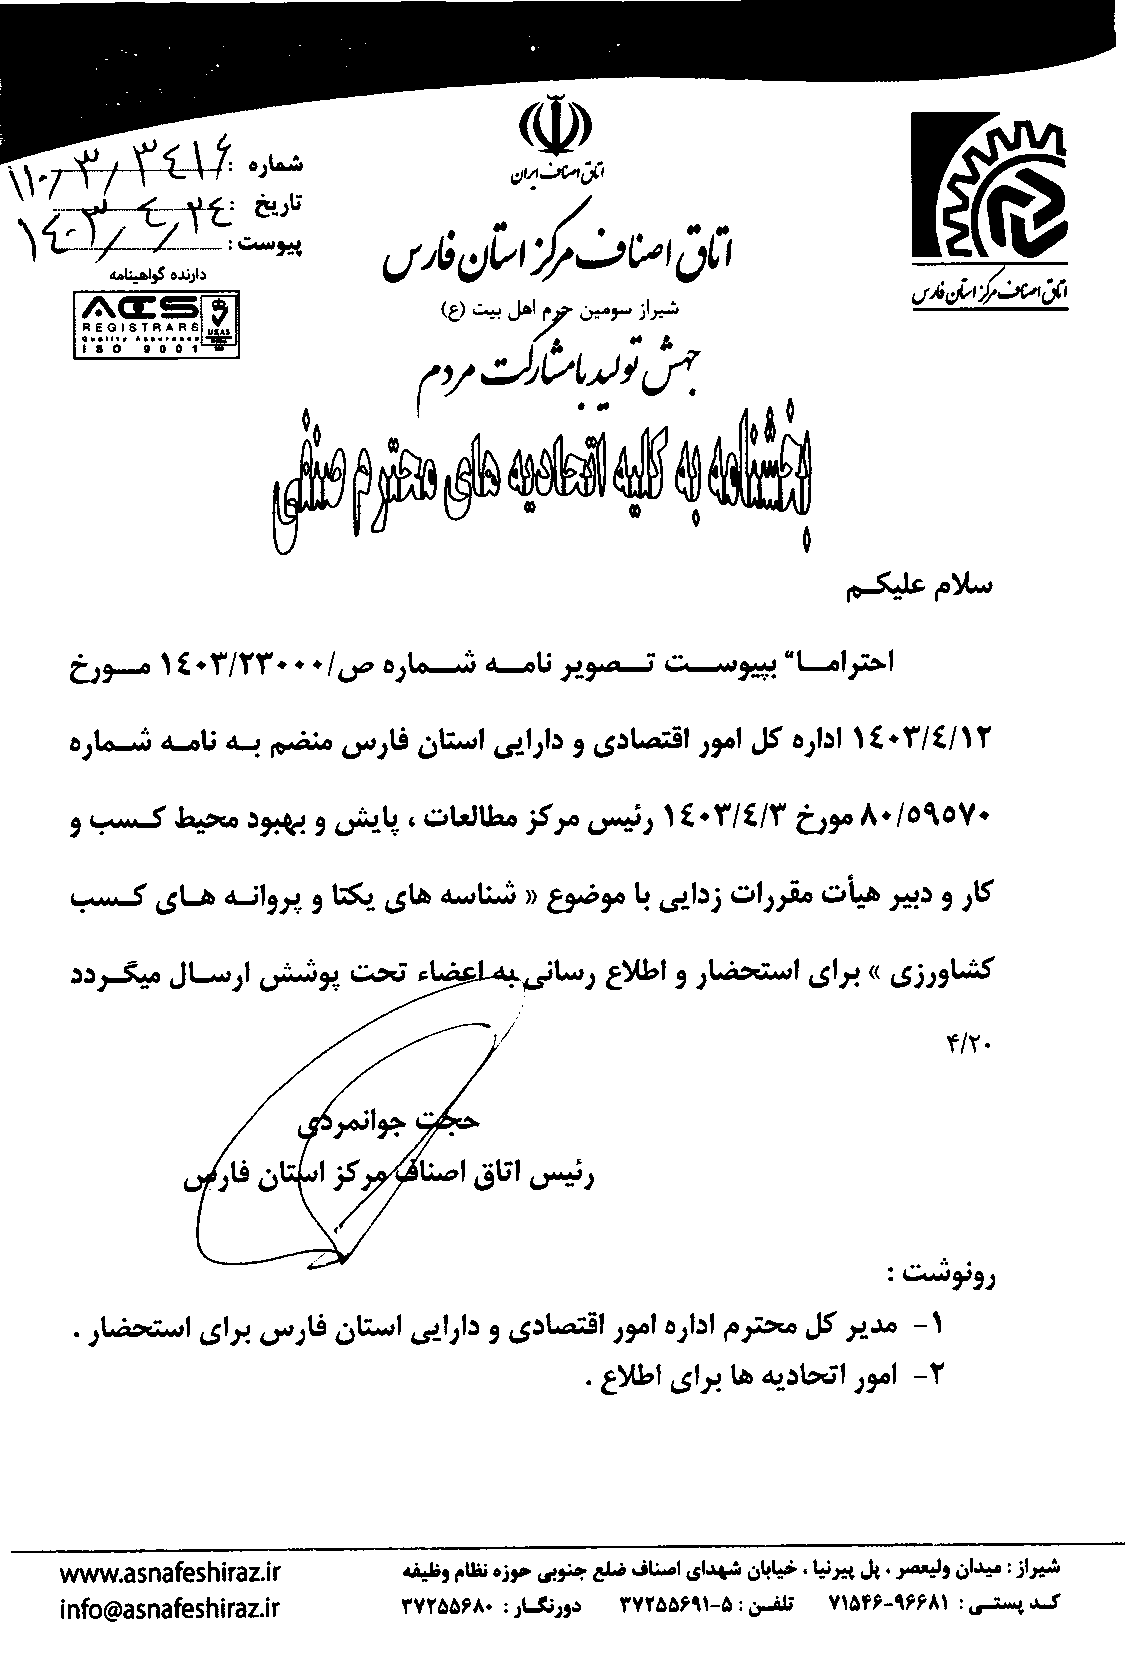 اتاق اصناف ایران
اتاق اصناف مرکز استان فارس
شیراز سومین حرم اهل بیت (ع)
جهش تولید با مشارکت مردم
شماره : ۱۱۰/۳/۳٤۱۶
تاریخ : ۱٤۰۳/٤/۲٤
پیوست :
دارنده گواهینامه
ACS
REGISTRARS
Quality Assurance
ISO 9001
UKAS
اتاق اصناف مرکز استان فارس
بخشنامه به کلیه اتحادیه های محترم صنفی
سلام علیکم
احتراما" بپیوست تصویر نامه شماره ص/۱٤۰۳/۲۳۰۰۰ مورخ
۱٤۰۳/٤/۱۲ اداره کل امور اقتصادی و دارایی استان فارس منضم به نامه شماره
۸۰/۵۹۵۷۰ مورخ ۱٤۰۳/٤/۳ رئیس مرکز مطالعات ، پایش و بهبود محیط کسب و
کار و دبیر هیأت مقررات زدایی با موضوع « شناسه های یکتا و پروانه های کسب
کشاورزی » برای استحضار و اطلاع رسانی به اعضاء تحت پوشش ارسال میگردد
۴/۲۰
حجت جوانمردی
رئیس اتاق اصناف مرکز استان فارس
رونوشت :
۱- مدیر کل محترم اداره امور اقتصادی و دارایی استان فارس برای استحضار .
۲- امور اتحادیه ها برای اطلاع .
شیراز : میدان ولیعصر ، پل پیرنیا ، خیابان شهدای اصناف ضلع جنوبی حوزه نظام وظیفه
کد پستی : ۹۶۶۸۱-۷۱۵۴۶ تلفن : ۵-۳۷۲۵۵۶۹۱ دورنگار : ۳۷۲۵۵۶۸۰
www.asnafeshiraz.ir
info@asnafeshiraz.ir